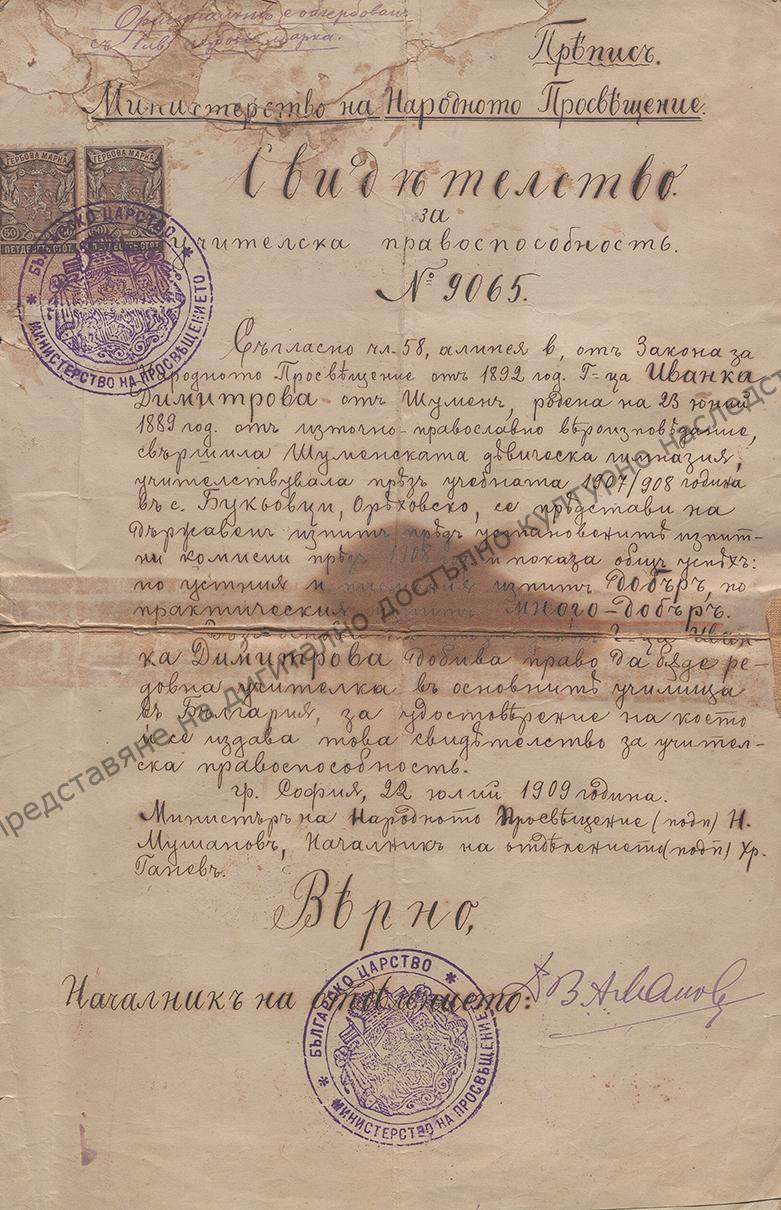 Оригиналътъ е обгербованъ
съ 1 лв. гербова марка.
Прѣписъ.
Министерство на Народното Просвѣщение.
Свидѣтелство
за
учителска правоспособность.
№ 9065.
ГЕРБОВА МАРКА
ГЕРБОВА МАРКА
50 50
50
ПЕТДЕСЕТЬ СТОТ.
ПЕТДЕСЕТЬ СТОТ.
БЪЛГАРСКО ЦАРСТВО
МИНИСТЕРСТВО НА ПРОСВѢЩЕНИЕТО
Съгласно чл. 58, алинея в, отъ Закона за
Народното Просвѣщение отъ 1892 год. Г-ца Иванка
Димитрова отъ Шуменъ, родена на 23 юний
1889 год. отъ източно-православно вѣроизповѣдание,
свършила Шуменската дѣвическа гимназия,
учителствувала прѣзъ учебната 1907/908 година
въ с. Букьовци, Орѣховско, се прѣдстави на
държавенъ изпитъ прѣдъ установенитѣ изпит-
ни комисии прѣзъ 1908 год. и показа общъ успѣхъ:
по устния и писмения изпитъ Добъръ, по
практическия изпитъ много-добъръ.
Г-ца Иван-
ка Димитрова добива право да бѫде ре-
довна учителка въ основнитѣ училища
въ България, за удостовѣрение на което
ѝ се издава това свидѣтелство за учител-
ска правоспособность.
гр. София, 22 юлий 1909 година.
Министъръ на Народното Просвѣщение (подп.) Н.
Мушановъ, Началникъ на отдѣлението (подп.) Хр.
Ганевъ.
Вѣрно,
Началникъ на отдѣлението:
БЪЛГАРСКО ЦАРСТВО
МИНИСТЕРСТВО НА ПРОСВѢЩЕНИЕТО
представяне на дигитално достъпно културно наследст